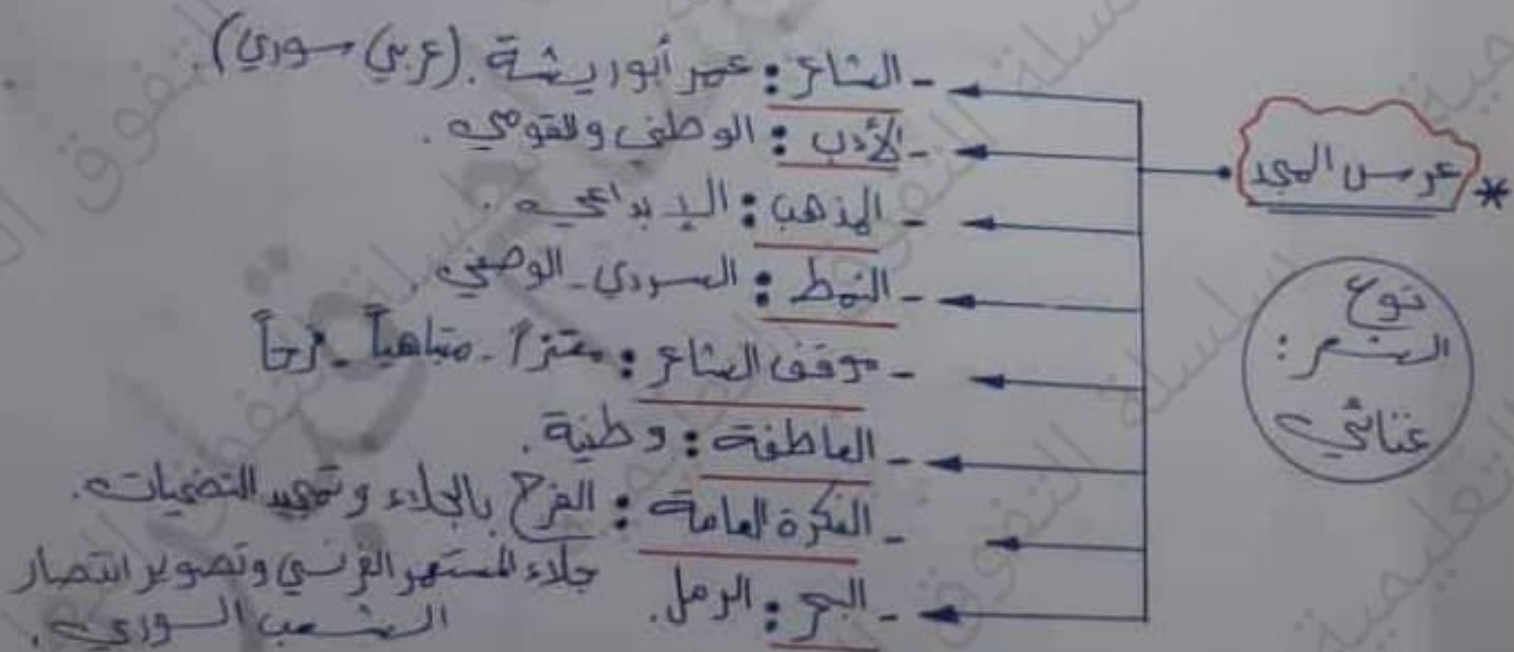 * عرس المجد
نوع
الشعر :
غنائي
- الشاعر : عمر أبو ريشة . (عربي سوري) .
- الأدب : الوطني والقومي .
- المذهب : الإبداعي .
- النمط : السردي - الوصفي .
- موقف الشاعر : معتزاً - متباهياً - فرحاً
- العاطفة : وطنية .
- الفكرة العامة : الفرح بالجلاء وتمجيد التضحيات .
جلاء المستعمر الفرنسي وتصوير انتصار
الشعب السوري .
- البحر : الرمل .
سلسلة التفوق التعليمية